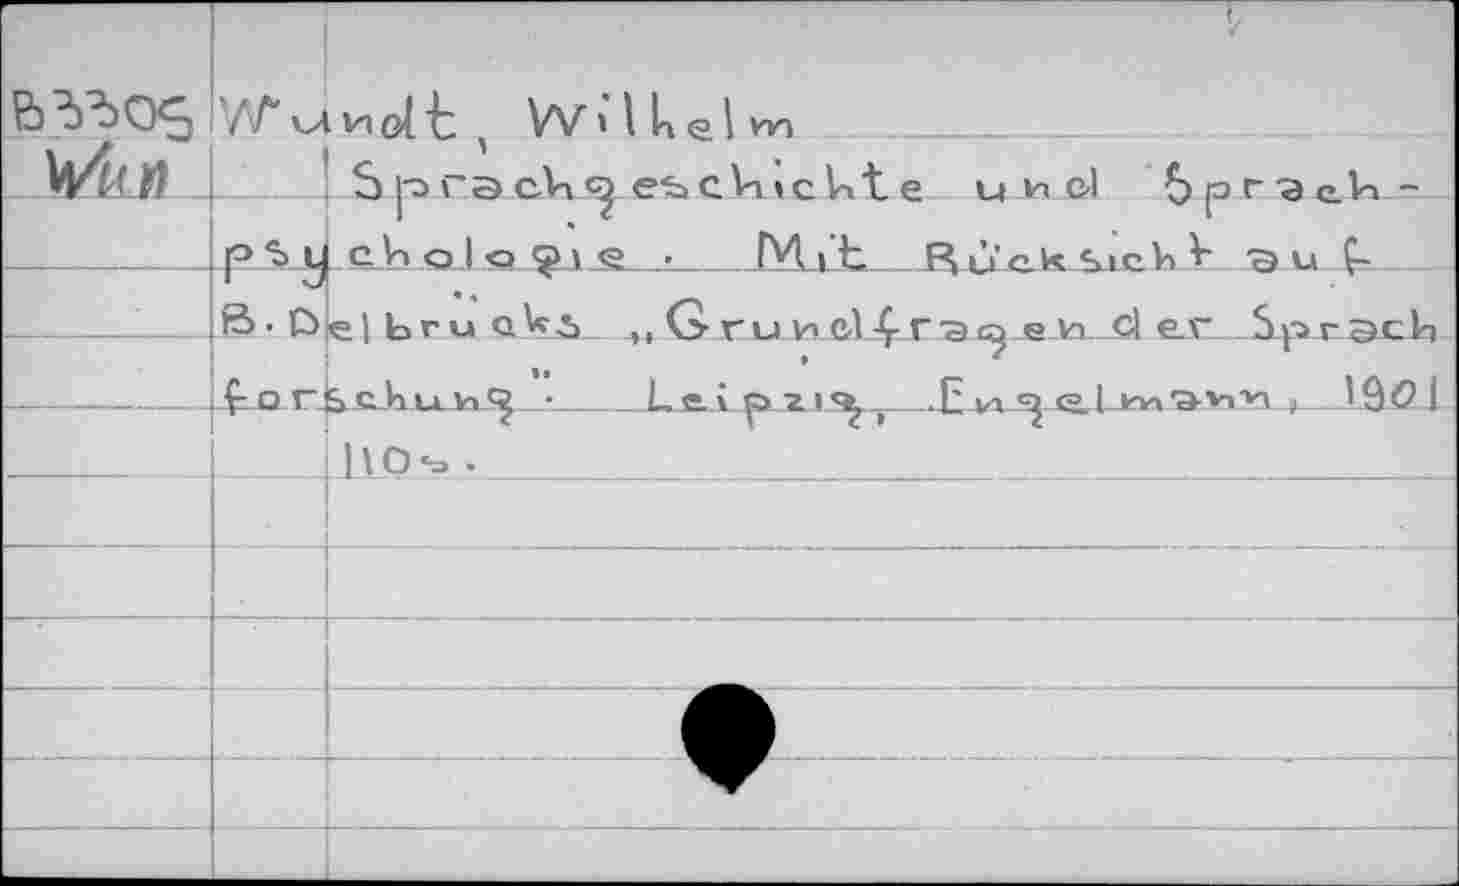 B3305 Wundt, Wilhelm
Wun Sprachgeschichte und Sprach-
psychologie. Mit Rücksicht auf
B. Delbrücks „Grundfragen der Sprach
forschung". Leipzig, Engelmann, 1901
110s.